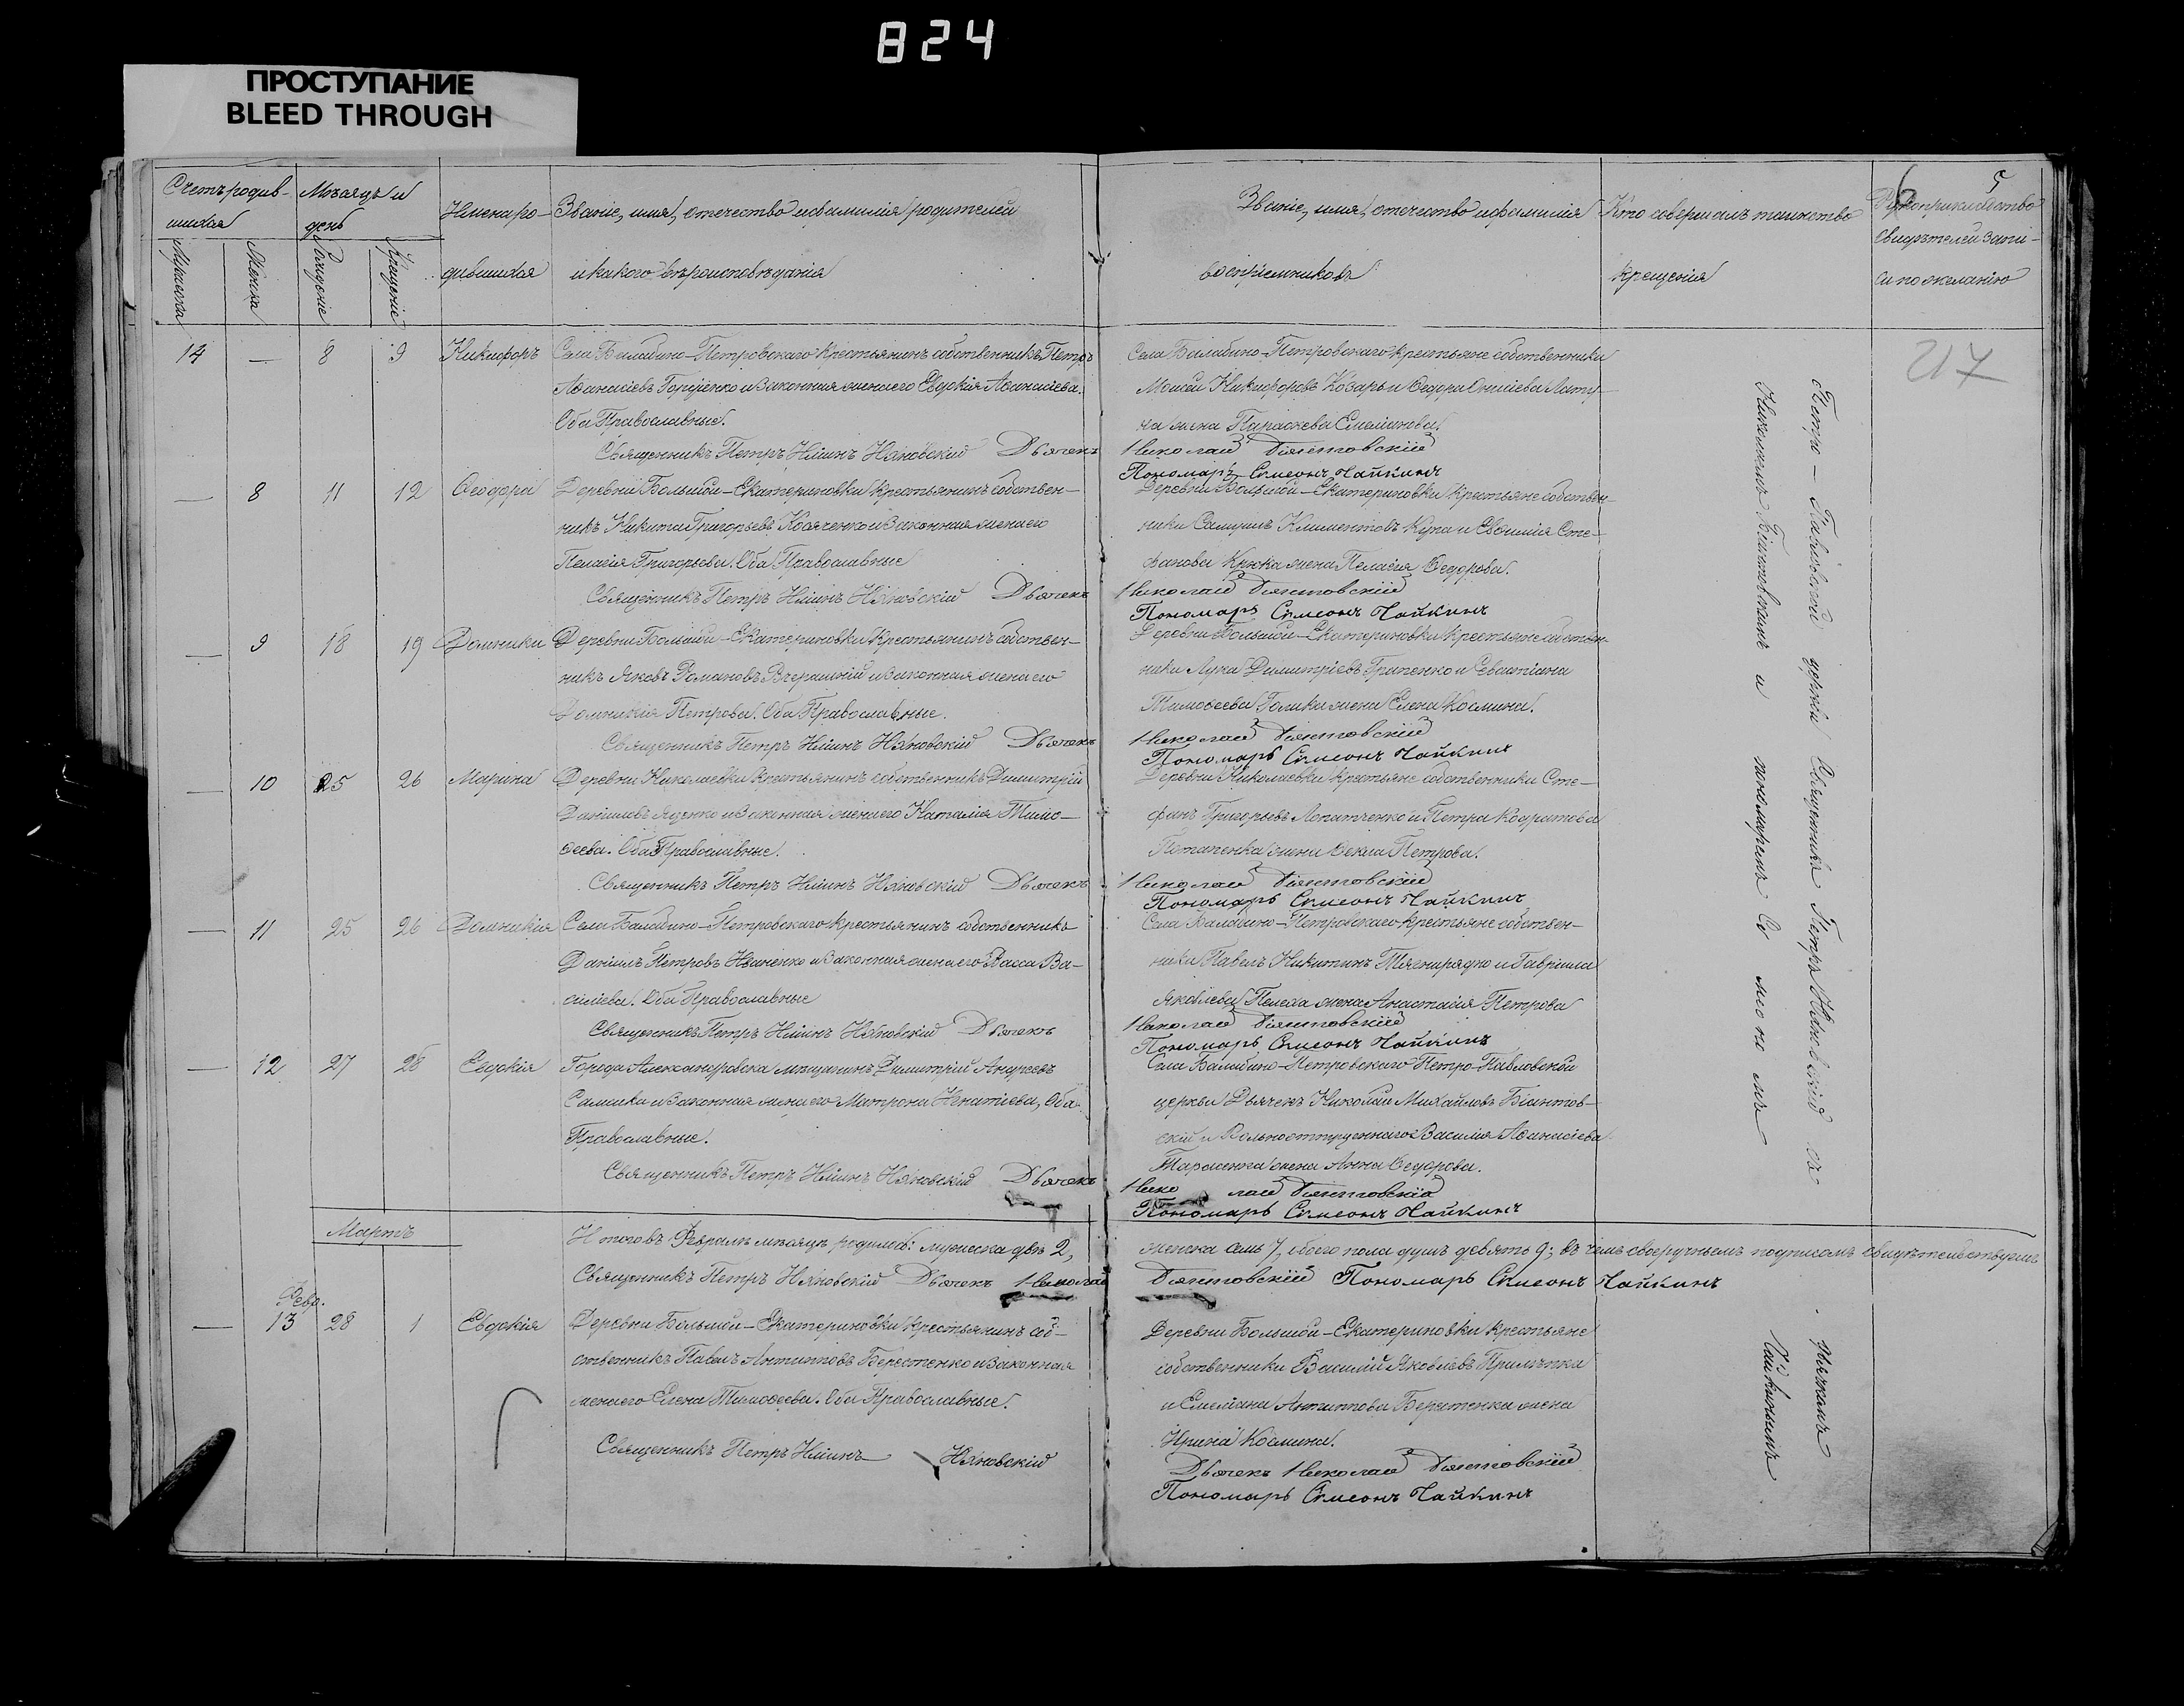 824
ПРОСТУПАНИЕ
BLEED THROUGH
5
Счетъ родив-
шихся
Мѣсяцъ и
день
Имена ро-
дившихся
Званіе, имя, отечество и фамилія родителей
и какого вѣроисповѣданія
Званіе, имя, отечество и фамилія
воспріемниковъ
Кто совершалъ таинство
крещенія
Рукоприкладство
свидѣтелей запи-
си по желанію
Мужеска
Женска
Рожденіе
Крещеніе
217
14 — 8 9 Никифоръ
Села Балабино-Петровскаго крестьянинъ собственникъ Петръ
Аѳанасіевъ Горпенко и законная жена его Евдокія Аѳанасіева.
Оба Православные.
Священникъ Петръ Иляновскій Дьячекъ
Села Балабино-Петровскаго крестьяне собственники
Моисей Никифоровъ Козарь и Ѳедора
жена Параскева Емеліанова
Николай Біантовскій
Пономарь Симеонъ Чайкинъ
— 8 11 12 Ѳеодора
Деревни Большой-Екатериновки крестьянинъ собствен-
никъ Никита Григорьевъ Косяченко и законная жена его
Пелагія Григорьева. Оба Православные
Священникъ Петръ Дьячекъ
Деревни Большой-Екатериновки крестьяне собствен-
ники Самуилъ Климентовъ Купа и Евфимія Сте-
фанова Крюка жена Пелагія Ѳедорова.
Николай Біантовскій
Пономарь Симеонъ Чайкинъ
— 9 18 19 Домники
Деревни Большой-Екатериновки крестьянинъ собствен-
никъ Яковъ Романовъ Вчерашній и законная жена его
Домникія Петрова. Оба Православные.
Священникъ Петръ Дьячекъ
Деревни Большой-Екатериновки крестьяне собствен-
ники Лука Димитріевъ Грипенко и Севастіана
Тимоѳеева Голика жена Елена Космина.
Николай Біантовскій
Пономарь Симеонъ Чайкинъ
— 10 25 26 Марина
Деревни Николаевки крестьянинъ собственникъ Димитрій
Даніиловъ Яценко и законная жена его Наталія Тимо-
ѳеева. Оба Православные.
Священникъ Петръ Дьячекъ
Деревни Николаевки крестьяне собственники Сте-
фанъ Григорьевъ Лопатченко и Петра Кодратова
Потапенка жена Ѳекла Петрова.
Николай Біантовскій
Пономарь Симеонъ Чайкинъ
— 11 25 26 Домникія
Села Балабино-Петровскаго крестьянинъ собственникъ
Даніилъ Петровъ Иваненко и законная жена его Васса Ва-
силіева. Оба Православные
Священникъ Петръ Дьячекъ
Села Балабино-Петровскаго крестьяне собствен-
ники Павелъ Никитинъ Тягнирядно и Гавріила
Яковлева Пелеха жена Анастасія Петрова
Николай Біантовскій
Пономарь Симеонъ Чайкинъ
— 12 27 28 Евдокія
Города Александровска мѣщанинъ Димитрій Андреевъ
Самика и законная жена его Матрона Игнатіева, Оба
Православные.
Священникъ Петръ Дьячекъ
Села Балабино-Петровскаго Петро-Павловской
церкви Дьячекъ Николай Михайловъ Біантов-
скій и Вольноотпущеннаго Василія Аѳанасіева
Тарасенка жена Анна Ѳедорова.
Николай Біантовскій
Пономарь Симеонъ Чайкинъ
Мартъ
Итого въ Февралѣ мѣсяцѣ родилось: мужеска двѣ 2,
женска семь 7, обоего пола душъ девять 9; въ чемъ своеручнымъ подписомъ свидѣтельствуемъ
Священникъ Петръ Дьячекъ Николай
Біантовскій Пономарь Симеонъ Чайкинъ
Февр.
— 13 28 1 Евдокія
Деревни Большой-Екатериновки крестьянинъ соб-
ственникъ Павелъ Антиповъ Берестенко и законная
жена его Елена Тимоѳеева. Оба Православные.
Священникъ Петръ
Деревни Большой-Екатериновки крестьяне
собственники Василій Яковлевъ Примѣпка
и Емеліана Антипова Берестенка жена
Ирина Космина.
Дьячекъ Николай Біантовскій
Пономарь Симеонъ Чайкинъ
Петро-Павловской церкви Священникъ Петръ съ
Николаемъ Біантовскимъ и пономаремъ Симеономъ
Чайкинымъ